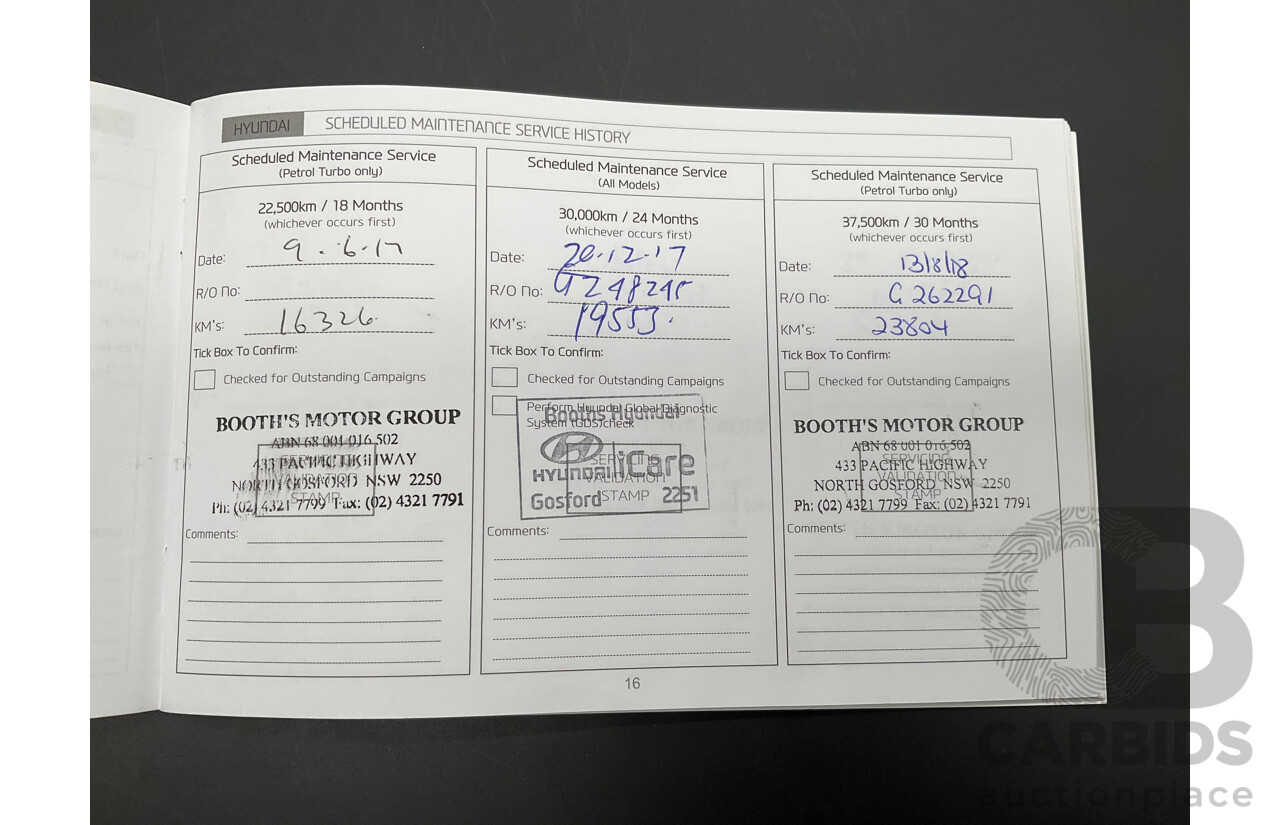 HYUNDAI SCHEDULED MAINTENANCE SERVICE HISTORY
Scheduled Maintenance Service
(Petrol Turbo only)
22,500km / 18 Months
(whichever occurs first)
Date: 9.6.17
R/O No:
KM's: 16326.
Tick Box To Confirm:
Checked for Outstanding Campaigns
BOOTH'S MOTOR GROUP
ABN 68 001 016 502
433 PACIFIC HIGHWAY
NORTH GOSFORD NSW 2250
Ph: (02) 4321 7799 Fax: (02) 4321 7791
SERVICING
VALIDATION
STAMP
Comments:
Scheduled Maintenance Service
(All Models)
30,000km / 24 Months
(whichever occurs first)
Date: 20.12.17
R/O No: G248245
KM's: 19553.
Tick Box To Confirm:
Checked for Outstanding Campaigns
Perform Hyundai Global Diagnostic
System (GDS)check
Booths Hyundai
HYUNDAI iCare
Gosford 2251
SERVICING
VALIDATION
STAMP
Comments:
Scheduled Maintenance Service
(Petrol Turbo only)
37,500km / 30 Months
(whichever occurs first)
Date: 13/8/18
R/O No: G 262291
KM's: 23804
Tick Box To Confirm:
Checked for Outstanding Campaigns
BOOTH'S MOTOR GROUP
ABN 68 001 016 502
433 PACIFIC HIGHWAY
NORTH GOSFORD NSW 2250
Ph: (02) 4321 7799 Fax: (02) 4321 7791
SERVICING
VALIDATION
STAMP
Comments:
16
CB
CARBIDS
auctionplace